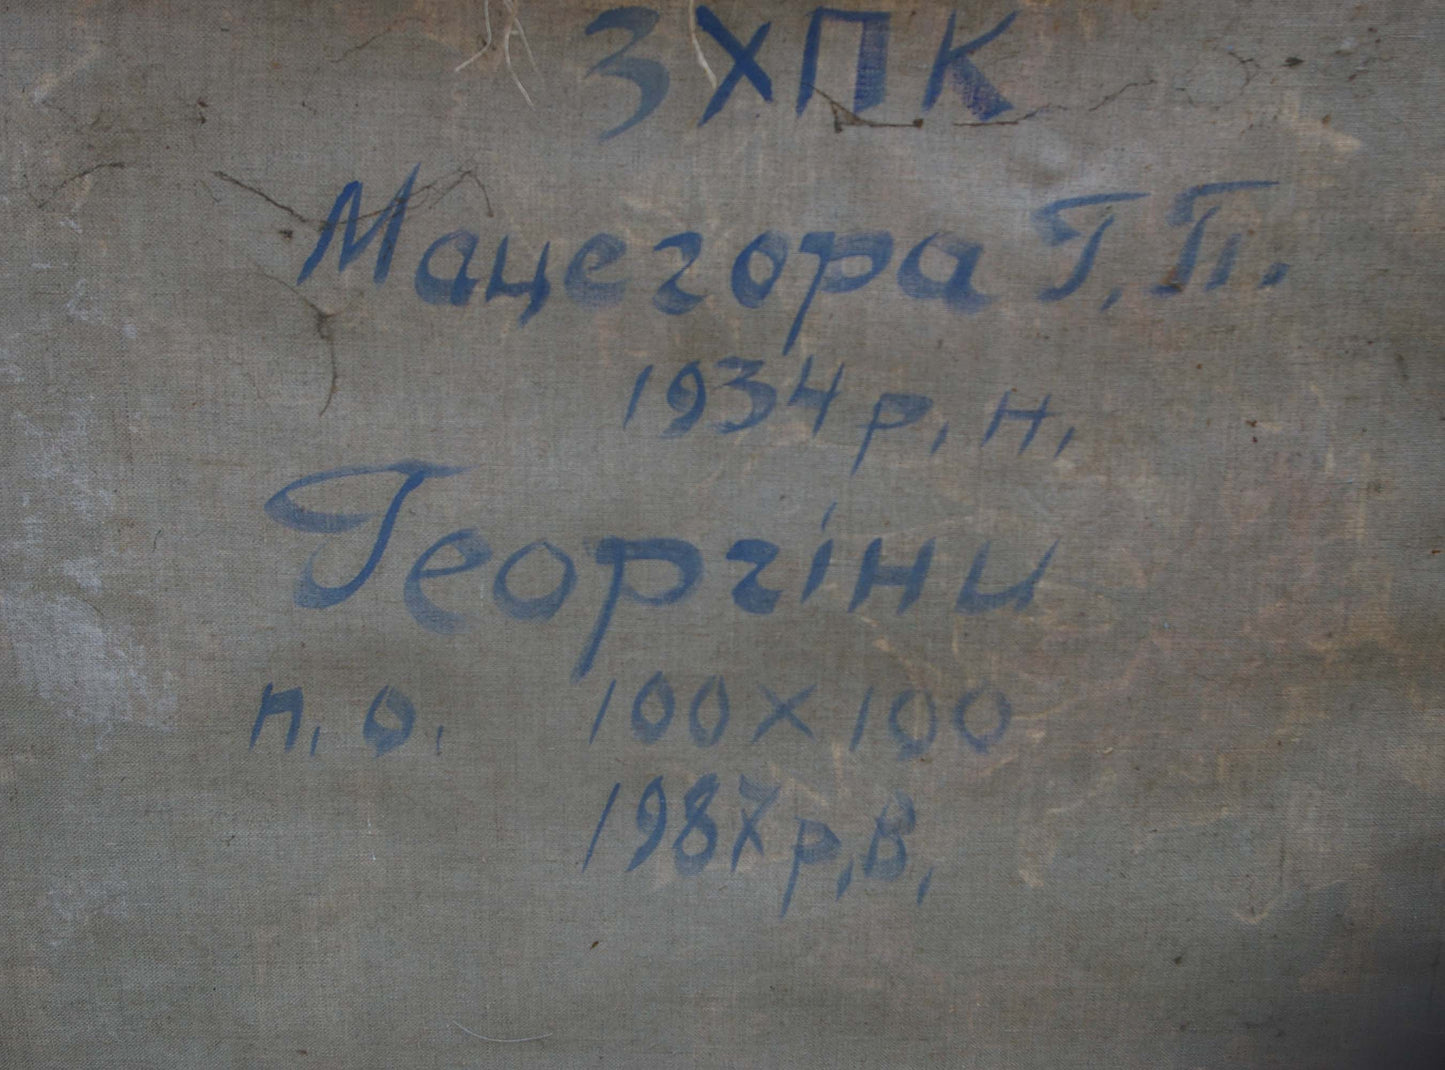 ЗХПК
Мацегора Г.П.
1934 р.н.
Георгіни
п.о. 100×100
1987 р.в.